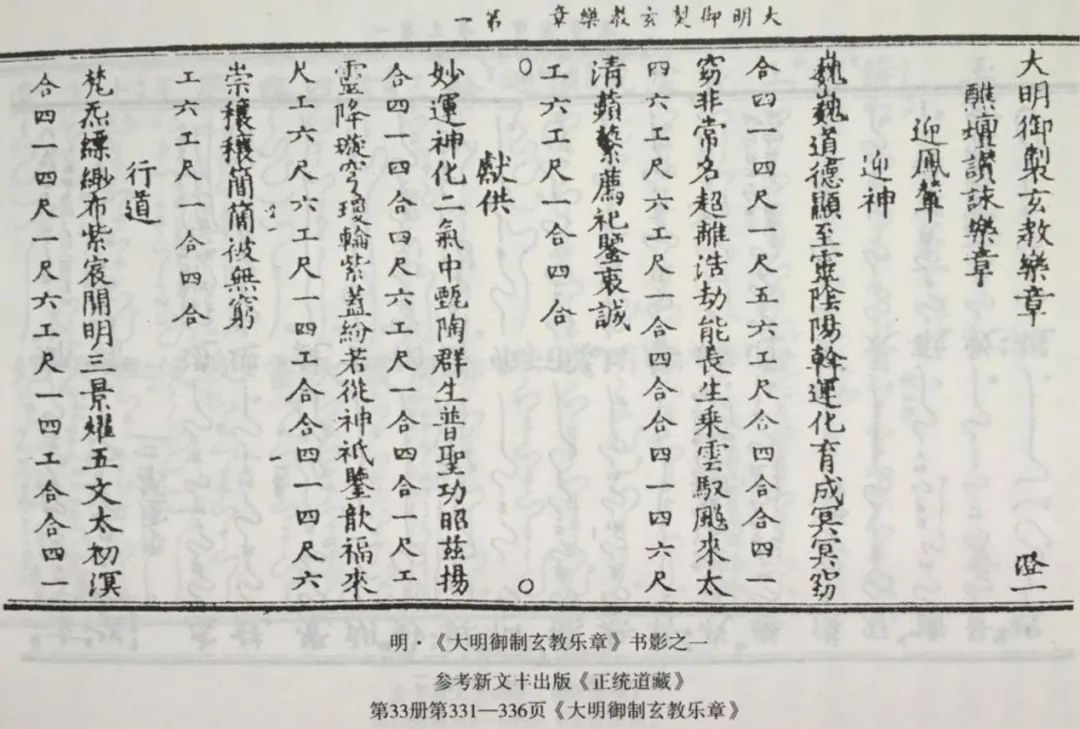 大明御製玄教樂章 第一
大明御製玄教樂章 澄一
醮壇讚詠樂章
迎鳳輦
迎神
巍巍道德顯至靈陰陽幹運化育成冥冥窈
合四一四尺一尺五六工尺合四合合四一
窈非常名超離浩劫能長生乘雲馭飈來太
四六工尺六工尺一合四合合四一四六尺
清蘋蘩薦祀鑒衷誠
工六工尺一合四合
獻供
妙運神化二氣中甄陶群生普聖功昭茲揚
合四一四合四尺六工尺一合四合一尺工
靈降璇穹瓊輪紫蓋紛若從神祇鑒歆福來
尺工六尺六工尺一四工合合四一四尺六
崇穰穰簡簡被無窮
工六工尺一合四合
行道
梵炁縹緲布紫宸開明三景耀五文太初溟
合四一四尺一尺六工尺一四工合合四一
明·《大明御制玄教乐章》书影之一
参考新文丰出版《正统道藏》
第33册第331—336页《大明御制玄教乐章》